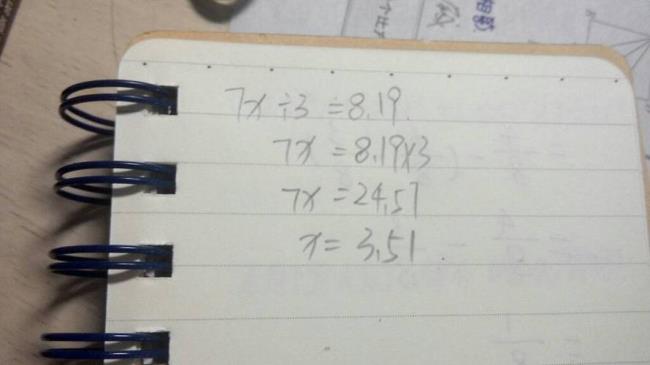 相似
7x÷3=8.19.
7x=8.19×3
7x=24.57
x=3.51